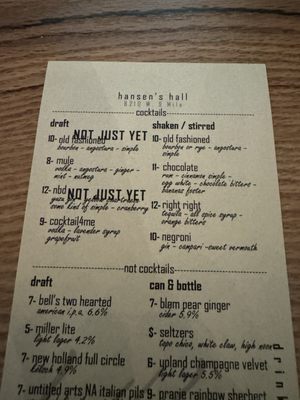 hansen's hall
8210 W 9 Mile
cocktails
draft
NOT JUST YET
10- old fashioned
bourbon - angostura - simple
8- mule
vodka - angostura - ginger -
mint - nutmeg
NOT JUST YET
12- nbd
some kind of simple - cranberry
9- cocktail4me
vodka - lavender syrup
grapefruit
shaken / stirred
10- old fashioned
bourbon or rye - angostura -
simple
11- chocolate
rum - cinnamon simple -
egg white - chocolate bitters -
bananas foster
12- right right
tequila - all spice syrup -
orange bitters
10- negroni
gin - campari - sweet vermouth
not cocktails
draft
7- bell's two hearted
american i.p.a. 6.6%
5- miller lite
light lager 4.2%
7- new holland full circle
kölsch 4.9%
7- untitled arts NA italian pils
can & bottle
7- blam pear ginger
cider 5.9%
$- seltzers
topo chico, white claw, high noon
6- upland champagne velvet
light lager 5.5%
9- prairie rainbow sherbert
drink